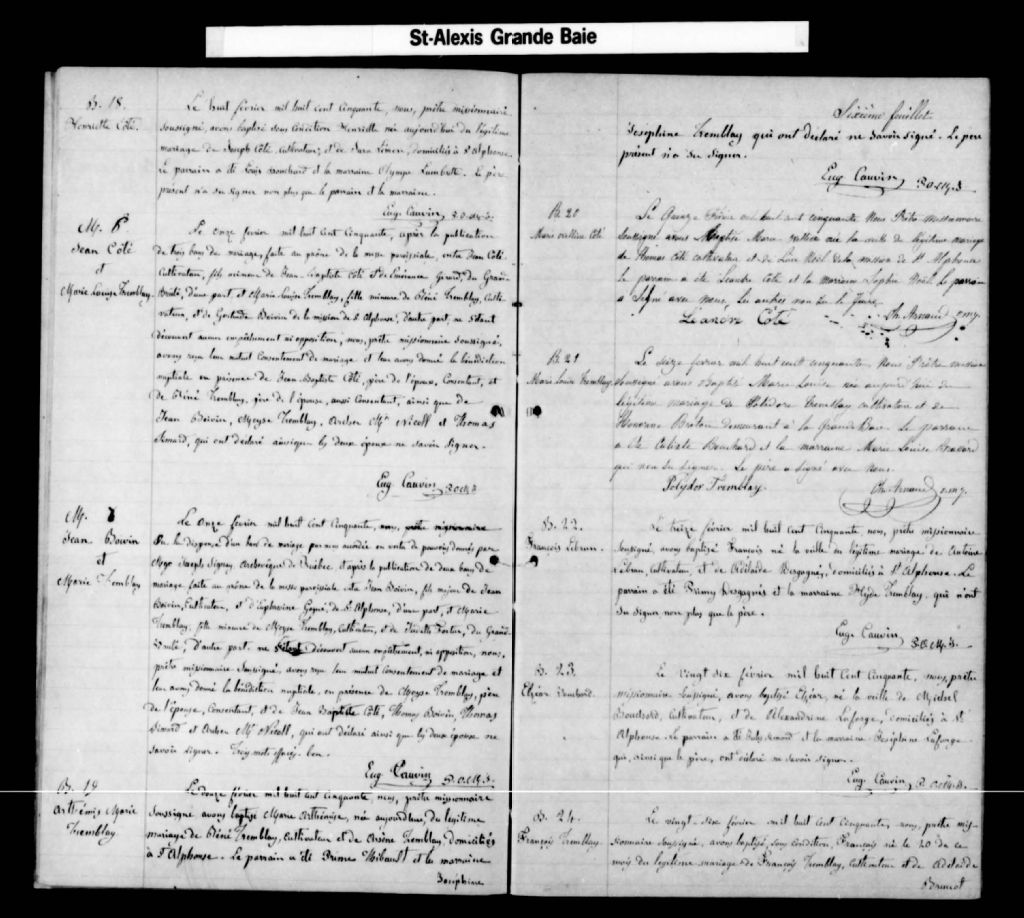 St-Alexis Grande Baie
B. 18.
Henriette Côté.
Le huit février mil huit cent cinquante, nous, prêtre missionnaire
soussigné, avons baptisé sous condition Henriette née aujourd'hui du légitime
mariage de Joseph Côté, cultivateur, et de Sara Simon, domiciliés à St Alphonse.
Le parrain a été Louis Bouchard et la marraine Olympe Lambert. Le père
présent n'a su signer non plus que le parrain et la marraine.
Eug. Cauvin, P.O.M.I.
M. 6
Jean Côté
et
Marie Louise Tremblay.
Le onze février mil huit cent cinquante, après la publication
de trois bans de mariage, faite au prône de la messe paroissiale, entre Jean Côté,
cultivateur, fils mineur de Jean Baptiste Côté et de Girard, du Grand
Brulé, d'une part, et Marie-Louise Tremblay, fille mineure de Béné Tremblay, culti-
vateur, et de Gertrude Boivin de la mission de St Alphonse, d'autre part, ne s'étant
découvert aucun empêchement ni opposition, nous, prêtre missionnaire soussigné,
avons reçu leur mutuel consentement de mariage et leur avons donné la bénédiction
nuptiale en présence de Jean-Baptiste Côté, père de l'époux, consentant, et
de Béné Tremblay, père de l'épouse, aussi consentant, ainsi que de
Jean Boivin, Moyse Tremblay, Archer Mc Nicoll et Thomas
Simard, qui ont déclaré ainsi que les deux époux ne savoir signer.
Eug. Cauvin, P.O.M.I.
M. 7
Jean Boivin
et
Marie Tremblay
Le onze février mil huit cent cinquante, nous, prêtre missionnaire
Vu la dispense d'un ban de mariage par nous accordée en vertu de pouvoirs donnés par
Mgr Joseph Signay, Archevêque de Québec, et après la publication de deux bans de
mariage faite au prône de la messe paroissiale entre Jean Boivin, fils majeur de Jean
Boivin, cultivateur, et d'Euphrosine Gagné, de St Alphonse, d'une part, et Marie
Tremblay, fille mineure de Moyse Tremblay, cultivateur, et de Fortin, du Grand
Brulé, d'autre part, ne s'étant découvert aucun empêchement, ni opposition, nous,
prêtre missionnaire soussigné, avons reçu leur mutuel consentement de mariage et
leur avons donné la bénédiction nuptiale, en présence de Moyse Tremblay, père
de l'épouse, consentant, et de Jean Baptiste Côté, Thomas Boivin, Thomas
Simard et Archer Mc Nicoll, qui ont déclaré ainsi que les deux époux ne
savoir signer. Trois mots effacés. bon.
Eug. Cauvin P.O.M.I.
B. 19
Arthémis Marie
Tremblay
Le douze février mil huit cent cinquante, nous, prêtre missionnaire
soussigné avons baptisé Marie Arthémise, née aujourd'hui, du légitime
mariage de Béné Tremblay, cultivateur et de Arsène Tremblay, domiciliés
à St Alphonse. Le parrain a été Prime Thibault et la marraine
Josephine
Sixième feuillet.
Joséphine Tremblay qui ont déclaré ne savoir signé. Le père
présent n'a su signer.
Eug. Cauvin, P.O.M.I.
B. 20
Marie Côté
Le Quinze Février mil huit cent cinquante Nous Prêtre missionnaire
soussigné avons Baptisé Marie née la veille de légitime mariage
de Thomas Côté cultivateur et de Noël de la mission de St Alphonse
le parrain a été Léandre Côté et la marraine Sophie Noël. Le parrain
a signé avec nous, les autres non su le faire.
Léandre Côté
Ch. Arnaud o.m.j.
B. 21
Marie Louise Tremblay
Le seize février mil huit cent cinquante Nous Prêtre mission
soussigné avons Baptisé Marie Louise née aujourd'hui du
légitime mariage de Polidore Tremblay cultivateur et de
Honorine Breton demeurant à la Grande Baie. Le parrain
a été Calixte Bouchard et la marraine Marie Louise
qui non su signer. Le père a signé avec Nous.
Polydor Tremblay
Ch. Arnaud o.m.j.
B. 22.
François Lebrun.
Le treize février mil huit cent cinquante, nous, prêtre missionnaire
soussigné, avons baptisé François né la veille en légitime mariage de Antoine
Lebrun, cultivateur, et de Adélaïde Desgagnés, domiciliés à St Alphonse. Le
parrain a été Desgagnés et la marraine Tremblay, qui n'ont
su signer non plus que le père.
Eug. Cauvin, P.O.M.I.
B. 23.
Elzéar Bouchard.
Le vingt six février mil huit cent cinquante, nous, prêtre
missionnaire soussigné, avons baptisé Elzéar, né la veille de Michel
Bouchard, cultivateur, et de Alexandrine Laforge, domiciliés à St
Alphonse. Le parrain a été Simard et la marraine Josephine Laforge
qui, ainsi que le père, ont déclaré ne savoir signer.
Eug. Cauvin, P.O.M.I.
B. 24.
François Tremblay.
Le vingt-six février mil huit cent cinquante, nous, prêtre mis-
sionnaire soussigné, avons baptisé, sous condition, François né le 20 de ce
mois du légitime mariage de François Tremblay, cultivateur et de Adélaïde